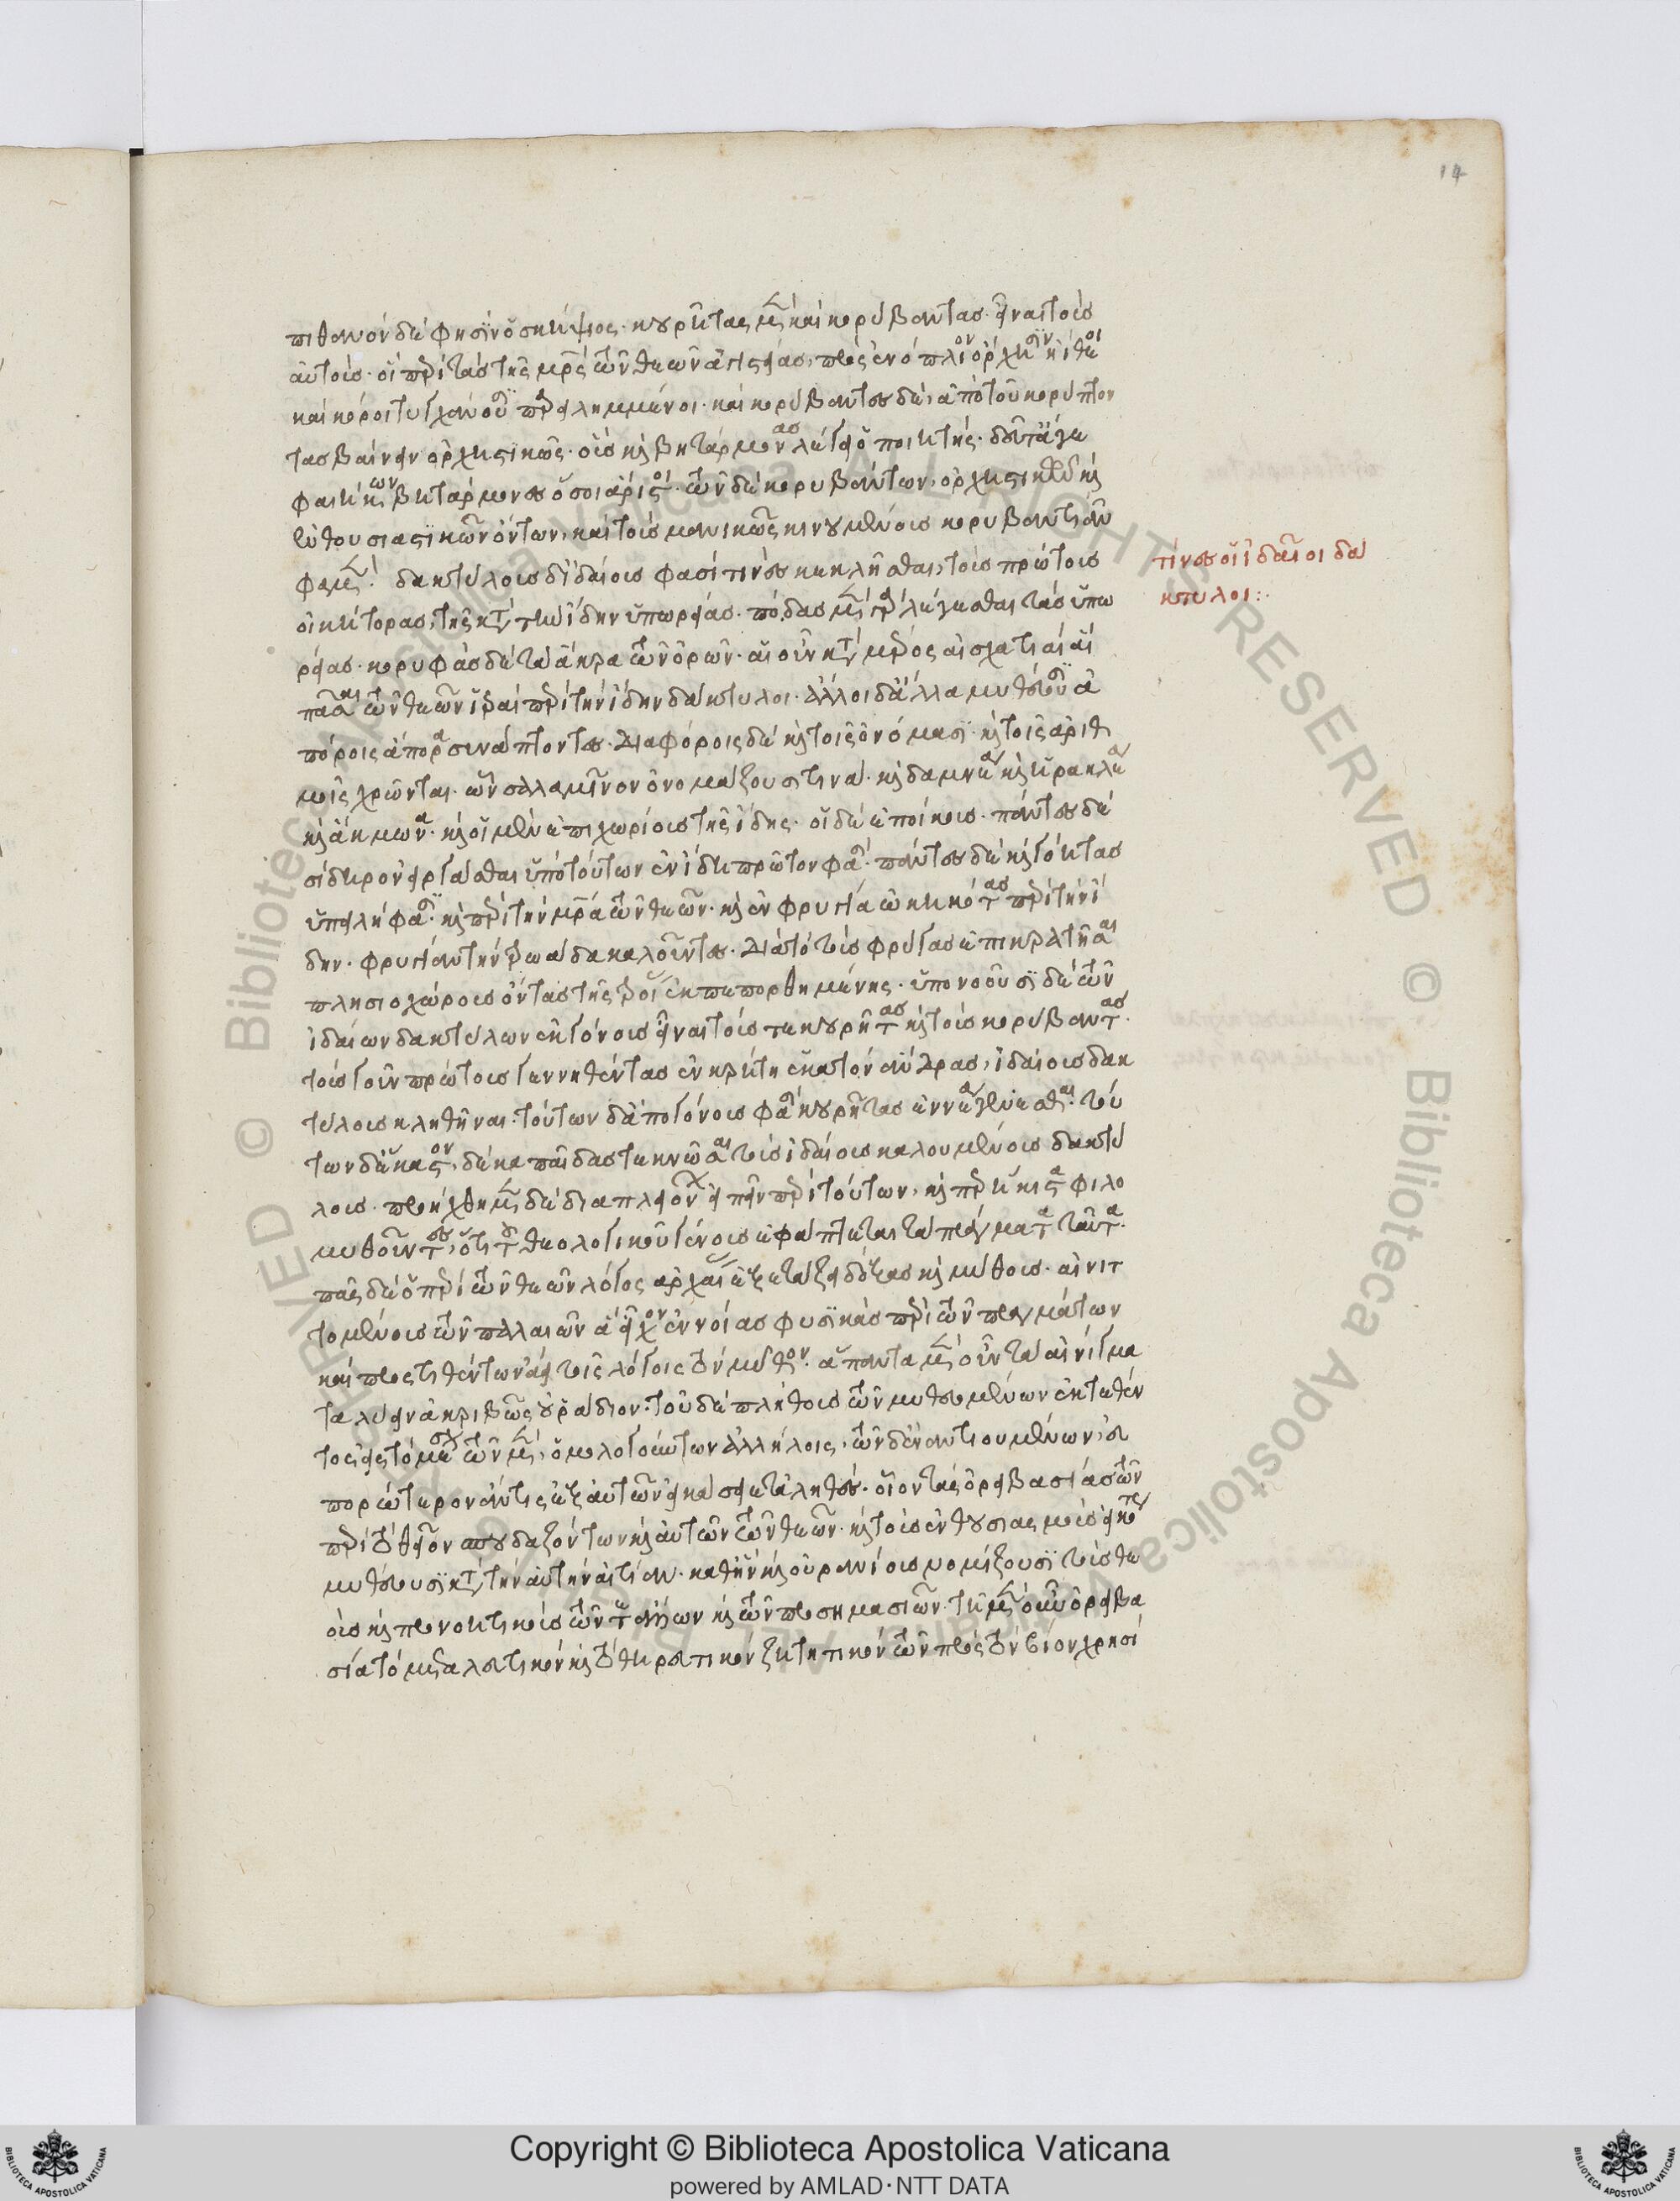 πιθανὸν δέ φησϊν ὁ σκήψιος· κουρῆτας μὲν καὶ κορύβαντας εἶναι τοὺς
αὐτοὺς· οἳ περὶ τὰς τῆς μρς τῶν θεῶν ἁγιστείας, πρὸς ἐνόπλιον ὄρχησιν ἠίθεοι
καὶ κόροι τυγχάνουσϊ παρειλημμένοι· καὶ κορύβαντες δὲ, ἀπὸ τοῦ κορύπτον
τας βαίνειν ὀρχηστικῶς· οὓς καὶ βητάρμονας λέγει ὁ ποιητής· δεῦτ' ἄγε
φαιήκων βητάρμονες ὅσοι ἄριστοι· τῶν δὲ κορυβάντων, ὀρχηστικῶν καὶ
ἐνθουσιαστϊκῶν ὄντων, καὶ τοὺς μανικῶς κινουμένους κορυβαντιᾶν
φαμέν· δακτύλους δ' ἰδαίους φασί τινες κεκλῆσθαι, τοὺς πρώτους
οἰκήτορας, τῆς κατὰ τὴν ἴδην ὑπωρείας· πόδας μὲν γὰρ λέγεσθαι τὰς ὑπω
ρείας· κορυφὰς δὲ τὰ ἄκρα τῶν ὀρῶν· αἱ οὖν κατὰ μέρος αἰσχατιαί αἱ
πᾶσαι τῶν θεῶν ἱεραὶ περὶ τὴν ἴδην δάκτυλοι· ἄλλοι δ' ἄλλα μυθεύουσϊν ἀ
πόροις ἄπορα συνάπτοντες· διαφόροις δὲ καὶ τοῖς ὀνόμασϊ· καὶ τοῖς ἀριθ
μοῖς χρῶνται· ὧν σαλαμῖνον ὀνομάζουσί τινα· καὶ δαμνέα καὶ ἡρακλέα
καὶ ἄκμωνα· καὶ οἱ μὲν ἐπιχωρίους τῆς ἴδης· οἱ δὲ ἐποίκους· πάντες δὲ
σίδηρον εἰργάσθαι ὑπὸ τούτων ἐν ἴδῃ πρῶτον φασί· πάντες δὲ καὶ γόητας
ὑπειλήφασϊ· καὶ περὶ τὴν μρα τῶν θεῶν· καὶ ἐν φρυγίᾳ ὠκηκότας περὶ τὴν ἴ
δην· φρυγίαν τὴν τρωάδα καλοῦντες· διὰ τὸ τοὺς φρύγας ἐπικρατῆσαι
πλησιοχώρους ὄντας τῆς τροίας ἐκπεπορθημένης· ὑπονοοῦσϊ δὲ τῶν
ἰδαίων δακτύλων ἐκγόνους εἶναι τούς τε κουρῆτας καὶ τοὺς κορύβαντας·
τοὺς γοῦν πρώτους γεννηθέντας ἐν κρήτῃ ἑκατὸν ἄνδρας, ἰδαίους δακ
τύλους κληθῆναι· τούτων δ' ἀπογόνους φασὶ κουρῆτας ἐννέα γενέσθαι· τού
των δ' ἕκαστον, δέκα παῖδας τεκνῶσαι τοὺς ἰδαίους καλουμένους δακτύ
λους· προήχθημεν δὲ διὰ πλειόνων εἰπεῖν περὶ τούτων, καίπερ ἥκιστα φιλο
μυθοῦντες, ὅτι τοῦ θεολογικοῦ γένους ἐφάπτεται τὰ πράγματα ταῦτα·
πᾶς δὲ ὁ περὶ τῶν θεῶν λόγος ἀρχαίας ἐξετάζει δόξας καὶ μύθους· αἰνιτ
τομένους τῶν παλαιῶν ἃς εἶχον ἐννοίας φυσϊκὰς περὶ τῶν πραγμάτων
καὶ προστιθέντων ἀεὶ τοῖς λόγοις τὸν μῦθον· ἅπαντα μὲν οὖν τὰ αἰνίγμα
τα λύειν ἀκριβῶς οὐ ῥᾴδιον· τοῦ δὲ πλήθους τῶν μυθευομένων ἐκτεθέν
τος εἰς τὸ μέσον τῶν μὲν, ὁμολογούντων ἀλλήλοις, τῶν δ' ἐναντιουμένων, εὐ
πορώτερον ἄν τις ἐξ αὐτῶν εἰκάσειε τἀληθές· οἷον τὰς ὀρειβασίας τῶν
περὶ τὸ θεῖον σπουδαζόντων καὶ αὐτῶν τῶν θεῶν· καὶ τοὺς ἐνθουσιασμοὺς εἰκότως
μυθεύουσϊ κατὰ τὴν αὐτὴν αἰτίαν· καθ' ἣν καὶ οὐρανίους νομίζουσϊ τοὺς θε
οὺς καὶ προνοητικοὺς τῶν τε ἄλλων καὶ τῶν προσημασιῶν· τῇ μὲν οὖν ὀρειβα
σίᾳ τὸ μεταλευτικὸν καὶ τὸ θηρευτικὸν ζητητικὸν τῶν πρὸς τὸν βίον χρησί
τίνες οἱ ἰδαῖοι δά
κτυλοι:·
14
Copyright © Biblioteca Apostolica Vaticana
powered by AMLAD·NTT DATA